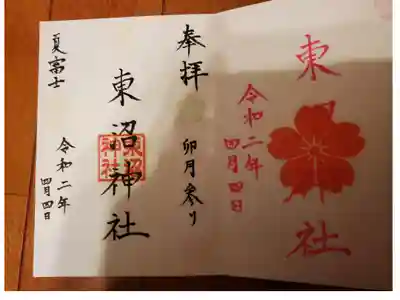 東
社
令和二年
四月四日
奉拝
卯月参り
東沼神社
東沼
神社
夏富士
令和二年
四月四日